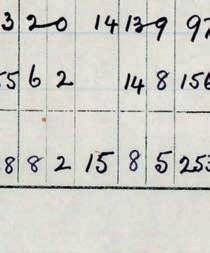 3 2 0 14 13 9 97
55 6 2 14 8 156
8 8 2 15 8 5 253